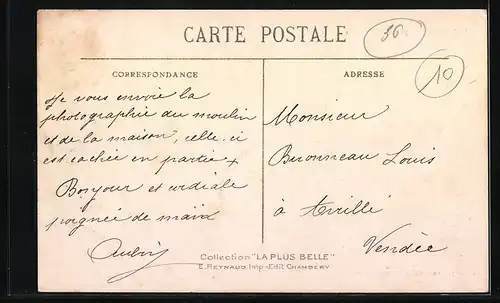 CARTE POSTALE
36
10
CORRESPONDANCE
Je vous envoie la
photographie du moulin
et de la maison, celle-ci
est cachée en partie
Bonjour et cordiale
poignée de main
ADRESSE
Monsieur
Louis
à Avrillé
Vendée
Collection "LA PLUS BELLE"
E. REYNAUD. Imp.-Edit CHAMBÉRY